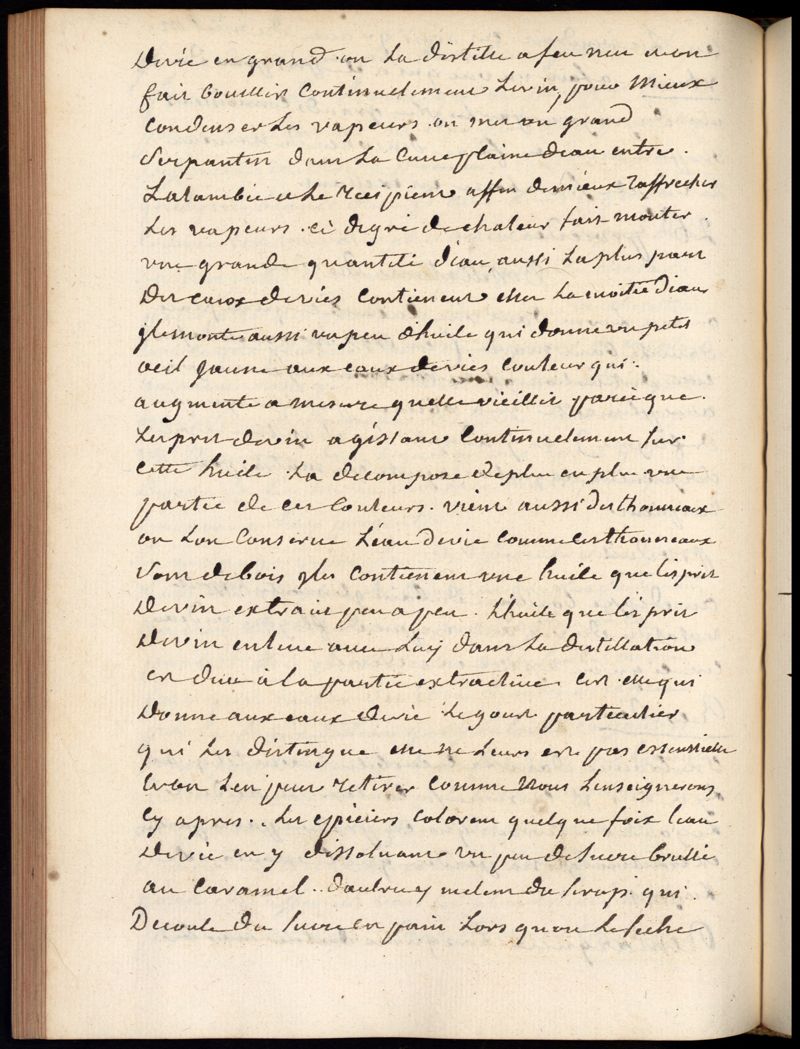 Devie en grand on La distille a feu nue on en
fait bouillir Continuelement Levin, pour Mieux
Condenser Les vapeurs on met un grand
Serpantin dans La Cuve plaine deau entre.
Lalambic et Le Recipient affin demieux Raffrecher
Les vapeurs. Cé degré de chaleur fait monter
une grande quantité d'eau, aussi La plus part
Des eaux devies Contienent elles La moitié d'eau
jl monte aussi un peu d'huile qui donne un petit
oeil jaune aux eaux devies Couleur qui
augmente a mesure quelle vieillit parceque
Lesprit devin agissant Continuelement sur
Cette huile La decompose deplus en plus une
partie de ces Couleurs vient aussi des thonneaux
ou Lon Conserve L'eau Devie Comme Ces thonneaux
sont debois jls Contienent une huile que Lesprit
Devin extrait peu a peu. L'huile que Lesprit
Devin enleve avec Luy dans La distillation
est due à la partie extractive Cest elle qui
Donne aux eaux devie Le gout particulier
qui Les distingue elle ne Leurs est pas essentielle
et on Len peut Retirer Comme Nous Lenseignerons
Cy apres. Les epiciers Colorent quelque fois L'eau
Devie en y dissoluant un peu de sucre brullé
au Caramel. dautres y metent du sirop qui
Decoule du sucre en pain Lors quon Le seche